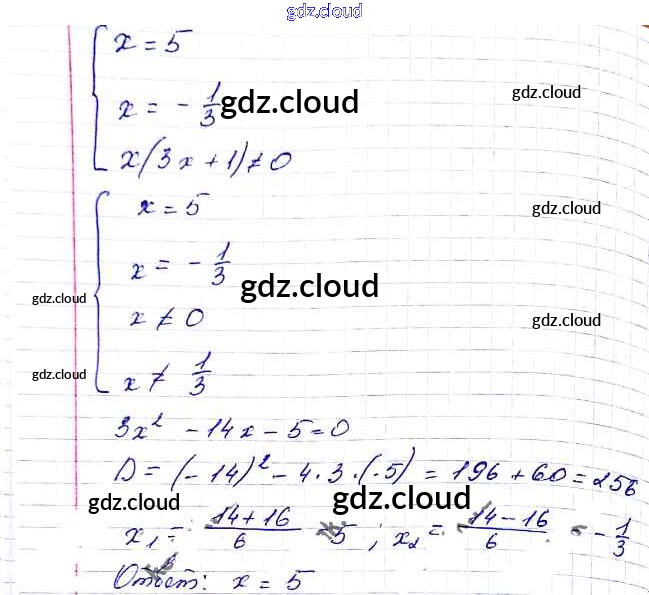 gdz.cloud
x = 5
x = - 1/3 gdz.cloud gdz.cloud
x(3x + 1) ≠ 0
x = 5 gdz.cloud
x = - 1/3
gdz.cloud gdz.cloud
x ≠ 0 gdz.cloud
gdz.cloud x ≠ 1/3
3x² - 14x - 5 = 0
D = (-14)² - 4·3·(-5) = 196 + 60 = 256
gdz.cloud gdz.cloud
x₁ = (14 + 16)/6 = 5 ; x₂ = (14 - 16)/6 = - 1/3
Ответ: x = 5